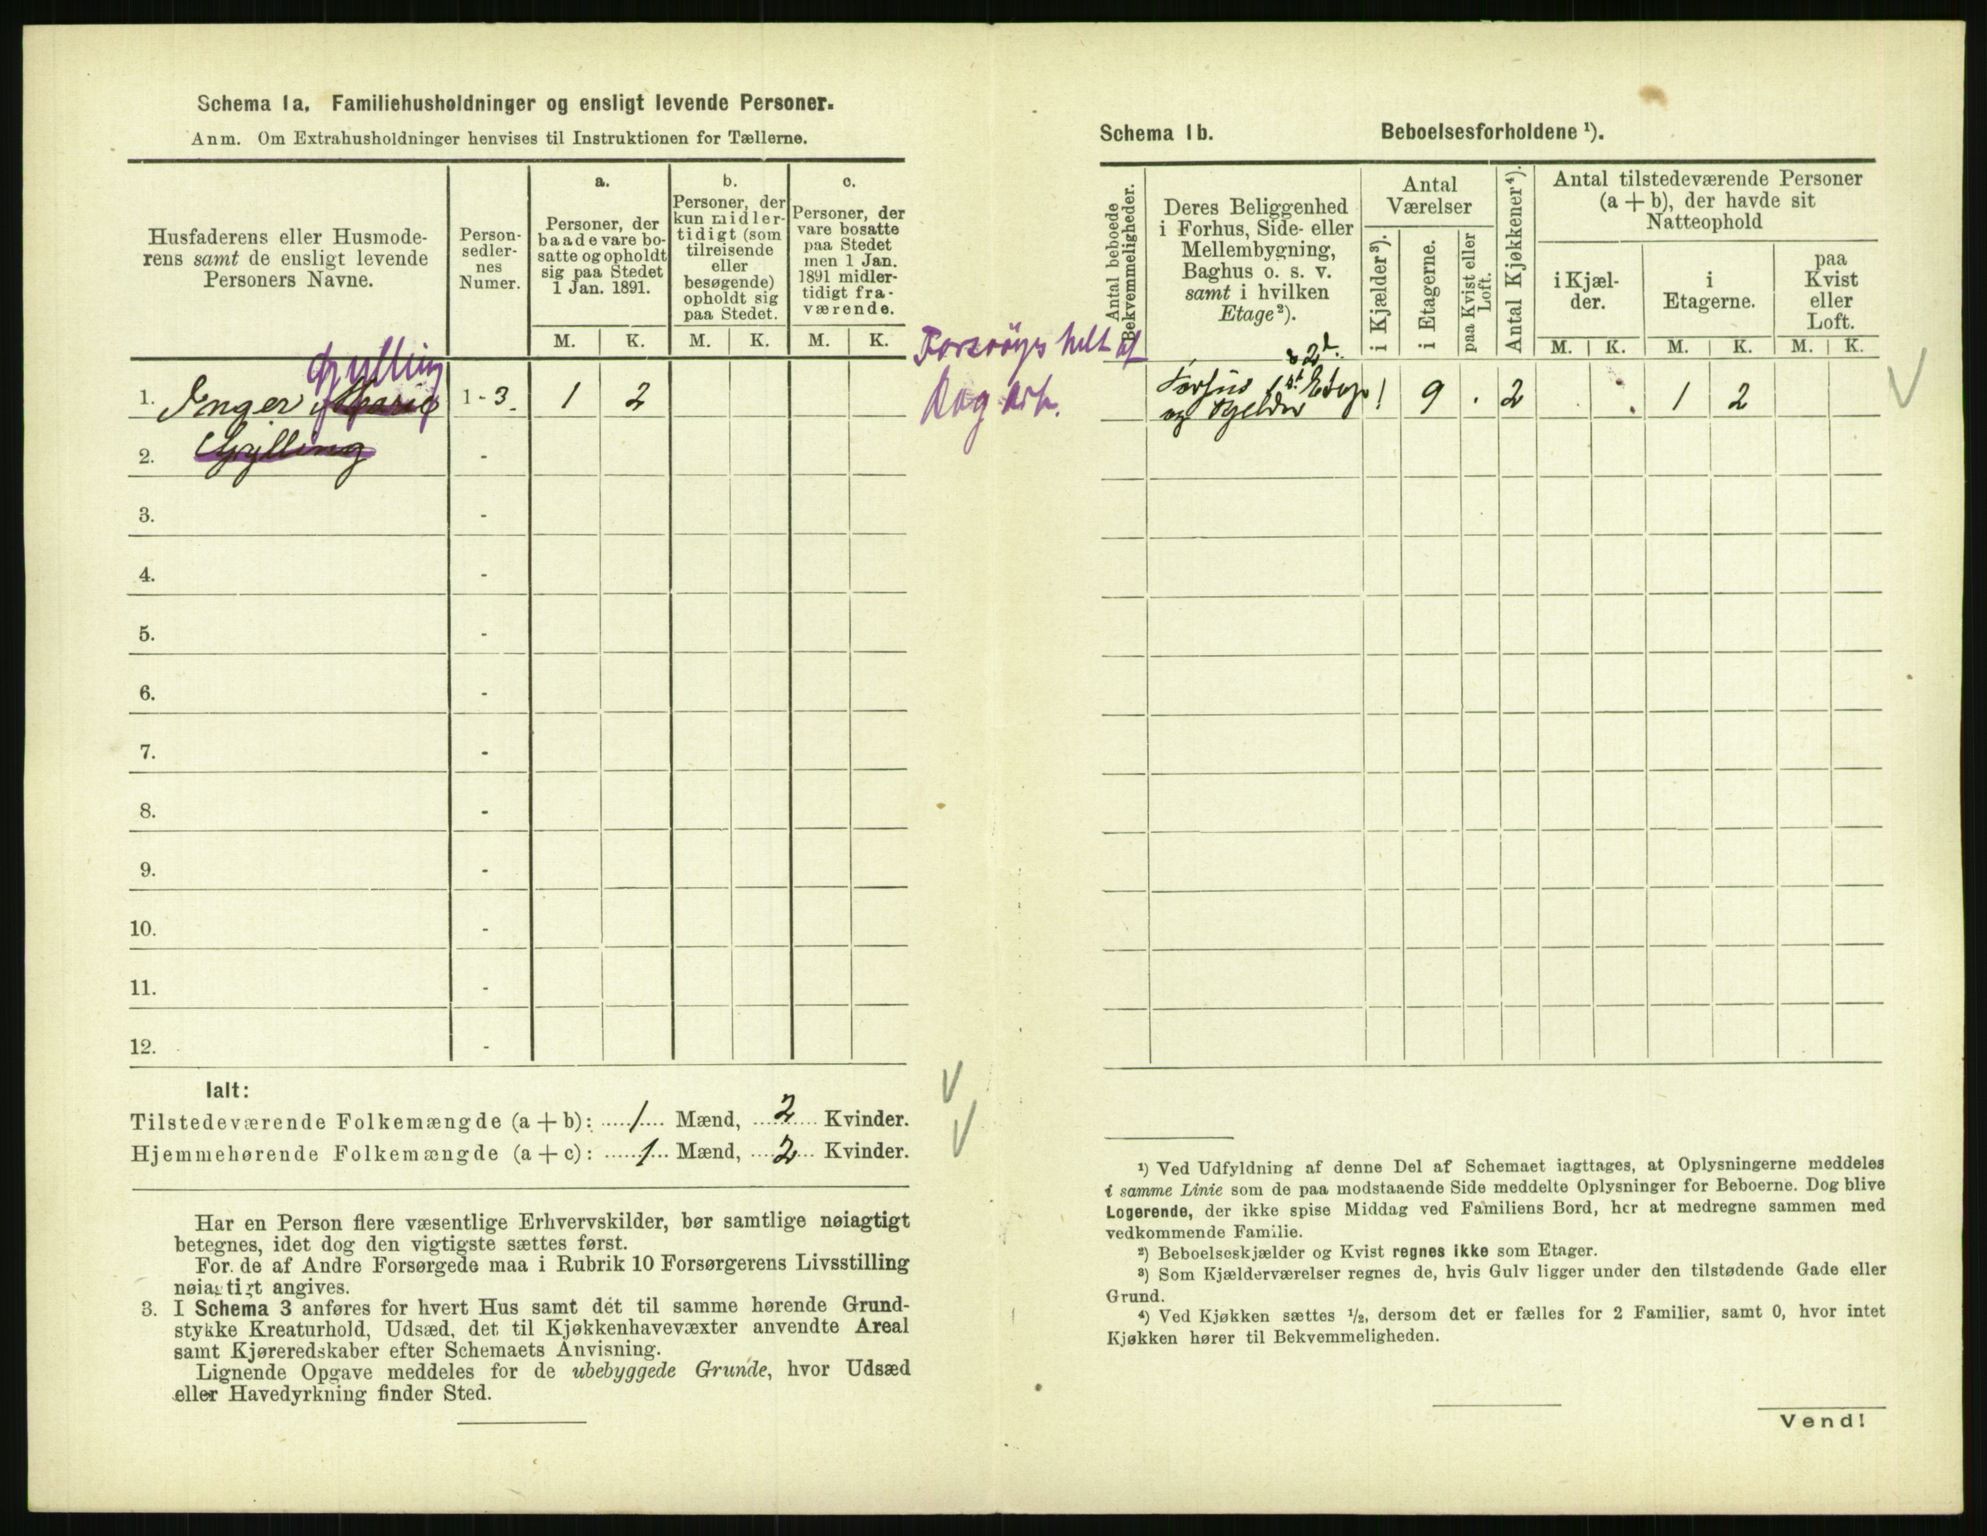 Schema 1a. Familiehusholdninger og ensligt levende Personer.
Anm. Om Extrahusholdninger henvises til Instruktionen for Tællerne.
Husfaderens eller Husmode-
rens samt de ensligt levende
Personers Navne.
Person-
sedler-
nes
Numer.
a.
Personer, der
baade vare bo-
satte og opholdt
sig paa Stedet
1 Jan. 1891.
b.
Personer, der
kun midler-
tidigt (som
tilreisende
eller
besøgende)
opholdt sig
paa Stedet.
c.
Personer, der
vare bosatte
paa Stedet
men 1 Jan.
1891 midler-
tidigt fra-
værende.
M. K. M. K. M. K.
Gylling
1. Inger Marie 1 - 3. 1 2
2. Gylling -
3. -
4. -
5. -
6. -
7. -
8. -
9. -
10. -
11. -
12. -
Ialt:
Tilstedeværende Folkemængde (a + b): 1 Mænd, 2 Kvinder.
Hjemmehørende Folkemængde (a + c): 1 Mænd, 2 Kvinder.
Har en Person flere væsentlige Erhvervskilder, bør samtlige nøiagtigt
betegnes, idet dog den vigtigste sættes først.
For de af Andre Forsørgede maa i Rubrik 10 Forsørgerens Livsstilling
nøiagtigt angives.
3. I Schema 3 anføres for hvert Hus samt det til samme hørende Grund-
stykke Kreaturhold, Udsæd, det til Kjøkkenhavevæxter anvendte Areal
samt Kjøreredskaber efter Schemaets Anvisning.
Lignende Opgave meddeles for de ubebyggede Grunde, hvor Udsæd
eller Havedyrkning finder Sted.
Forsørges helt af
Dag Arb.
Schema 1b. Beboelsesforholdene ¹).
Antal beboede
Bekvemmeligheder.
Deres Beliggenhed
i Forhus, Side- eller
Mellembygning,
Baghus o. s. v.
samt i hvilken
Etage²).
Antal
Værelser
i Kjælder³).
i Etagerne.
paa Kvist eller
Loft.
Antal Kjøkkener⁴).
Antal tilstedeværende Personer
(a + b), der havde sit
Natteophold
i Kjæl-
der.
i
Etagerne.
paa
Kvist
eller
Loft.
M. K. M. K. M. K.
& 2d.
Forhus 1st Etage 1 9 . 2 . . 1 2
og Kjelder
¹) Ved Udfyldning af denne Del af Schemaet iagttages, at Oplysningerne meddeles
i samme Linie som de paa modstaaende Side meddelte Oplysninger for Beboerne. Dog blive
Logerende, der ikke spise Middag ved Familiens Bord, her at medregne sammen med
vedkommende Familie.
²) Beboelseskjælder og Kvist regnes ikke som Etager.
³) Som Kjælderværelser regnes de, hvis Gulv ligger under den tilstødende Gade eller
Grund.
⁴) Ved Kjøkken sættes ½, dersom det er fælles for 2 Familier, samt 0, hvor intet
Kjøkken hører til Bekvemmeligheden.
Vend!